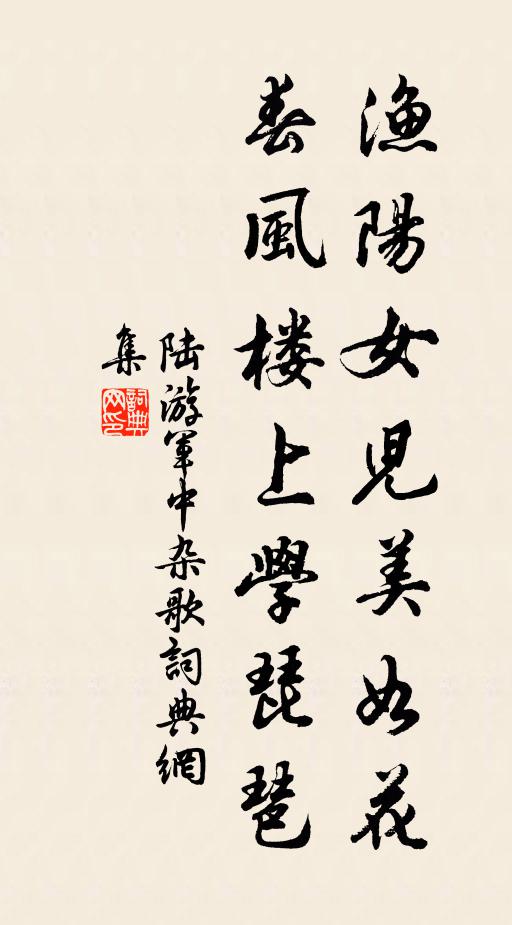 渔陽女児美如花
春風楼上學琵琶
陆游軍中杂歌詞典網
集
詞典
网印